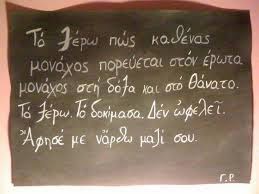 Τό ξέρω πώς καθένας
μονάχος πορεύεται στόν ἔρωτα
μονάχος στή δόξα καί στό θάνατο.
Τό ξέρω. Τό δοκίμασα. Δέν ὠφελεῖ.
Ἄφησέ με νἄρθω μαζί σου.
Γ.Ρ.